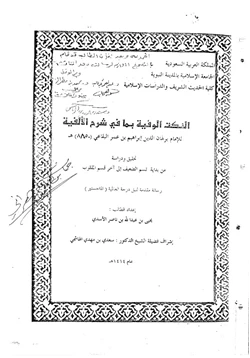 المملكة العربية السعودية
الجامعة الإسلامية بالمدينة النبوية
كلية الحديث الشريف والدراسات الإسلامية
النكت الوفية بما في شرح الألفية
للإمام برهان الدين إبراهيم بن عمر البقاعي (٨٨٥) هـ
تحقيق ودراسة
من بداية قسم الضعيف إلى آخر قسم المقلوب
رسالة مقدمة لنيل درجة العالمية ( الماجستير )
إعداد الطالب :
يحيى بن عبدالله بن ناصر الأسدي
إشراف فضيلة الشيخ الدكتور : سعدي بن مهدي الهاشمي
عام ١٤١٤هـ